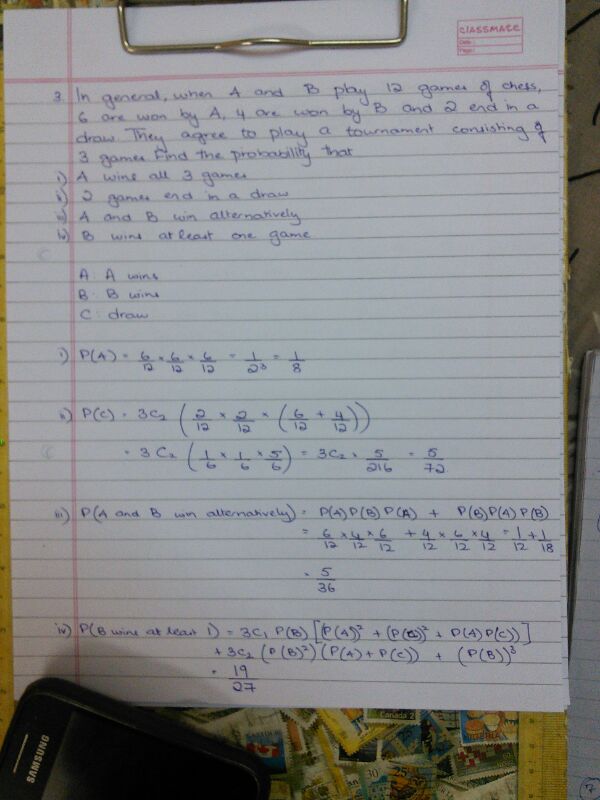 classmate
Date :
Page :
3. In general, when A and B play 12 games of chess,
6 are won by A, 4 are won by B and 2 end in a
draw. They agree to play a tournament consisting of
3 games. Find the probability that
i) A wins all 3 games
ii) 2 games end in a draw
iii) A and B win alternatively
iv) B wins at least one game
A: A wins
B: B wins
C: draw
i) P(A) = 6/12 × 6/12 × 6/12 = 1/2³ = 1/8
ii) P(C) = 3C₂ (2/12 × 2/12 × (6/12 + 4/12))
= 3C₂ (1/6 × 1/6 × 5/6) = 3C₂ × 5/216 = 5/72
iii) P(A and B win alternatively) = P(A)P(B)P(A) + P(B)P(A)P(B)
= 6/12 × 4/12 × 6/12 + 4/12 × 6/12 × 4/12 = 1/12 + 1/18
= 5/36
iv) P(B wins at least 1) = 3C₁ P(B) [(P(A)² + (P(C))² + P(A)P(C))]
+ 3C₂ (P(B)²) (P(A) + P(C)) + (P(B))³
= 19/27
SAMSUNG
Canada 2